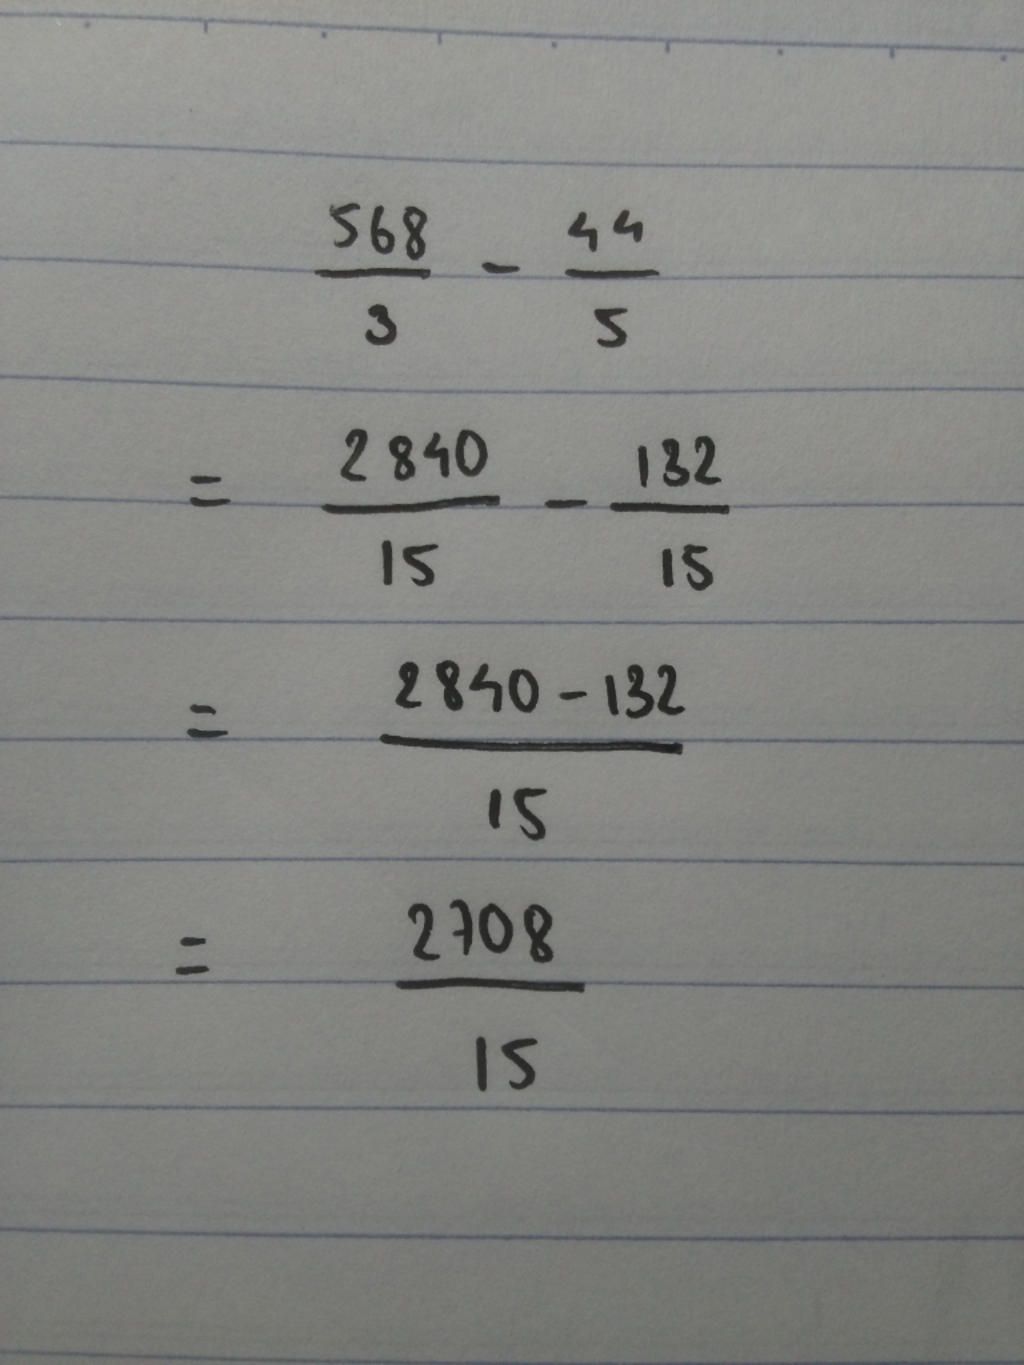 568/3 - 44/5
= 2840/15 - 132/15
= 2840 - 132/15
= 2708/15